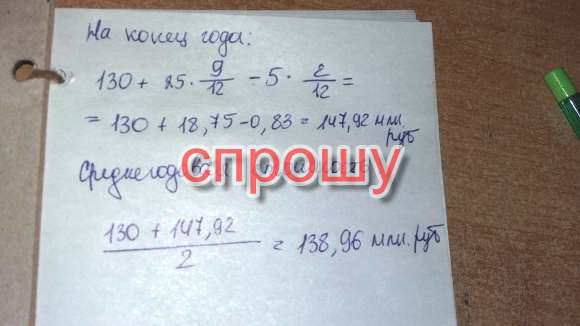 На конец года:
130 + 25 · 9/12 - 5 · 2/12 =
= 130 + 18,75 - 0,83 = 147,92 млн.
руб
спрошу
130 + 147,92
2
= 138,96 млн. руб